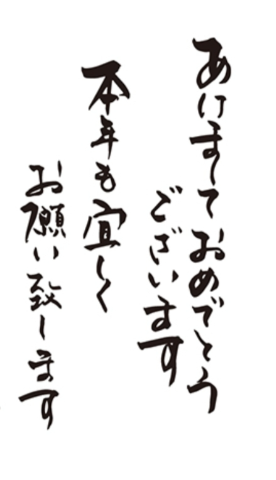 あけましておめでとう
ございます
本年も宜しく
お願い致します